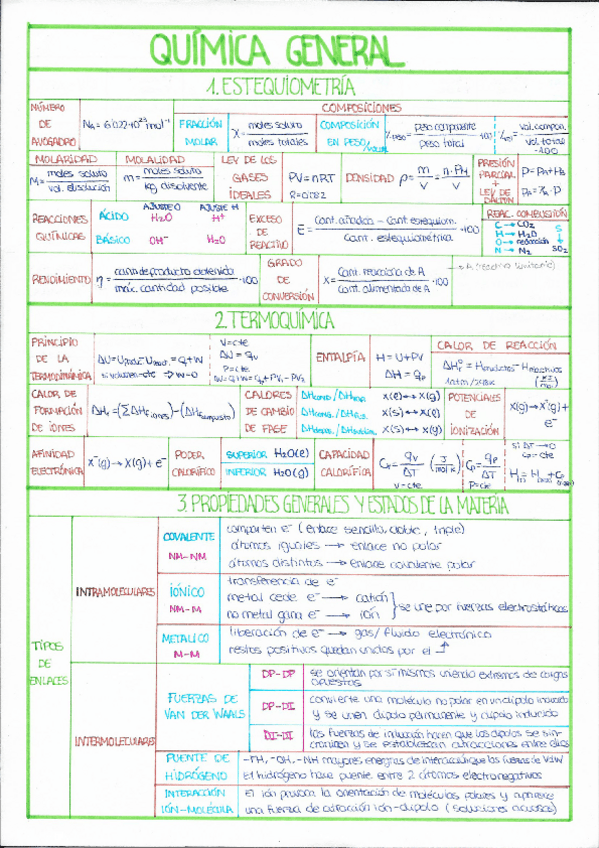 QUÍMICA GENERAL
1. ESTEQUIOMETRÍA
NÚMERO DE AVOGADRO
NA = 6.022·10²³ mol⁻¹
COMPOSICIONES
FRACCIÓN MOLAR
X = moles soluto / moles totales
COMPOSICIÓN EN PESO/
%peso = peso componente / peso total · 100
vol. compon. / vol. total · 100
MOLARIDAD
M = moles soluto / vol. disolución
MOLALIDAD
m = moles soluto / kg disolvente
LEY DE LOS GASES IDEALES
PV = nRT
R = 0.082
DENSIDAD
ρ = m / V = n·PM / V
PRESIÓN PARCIAL + LEY DE DALTON
REACCIONES QUÍMICAS
AJUSTE O
AJUSTE H
ÁCIDO
H₂O
H⁺
BÁSICO
OH⁻
H₂O
EXCESO DE REACTIVO
E = Cant. añadida - Cant. estequiom. / Cant. estequiométrica · 100
REAC. COMBUSTIÓN
C → CO₂
H → H₂O
O → reducción
N → N₂
S
↓
SO₂
RENDIMIENTO
η = cantidad producto obtenida / máx. cantidad posible · 100
GRADO DE CONVERSIÓN
X = Cant. reacciona de A / Cant. alimentada de A · 100
→ A (reactivo limitante)
2. TERMOQUÍMICA
PRINCIPIO DE LA TERMODINÁMICA
si volumen cte → W=0
V=cte
ΔU = qv
P=cte
ENTALPÍA
H = U + PV
ΔH = qp
CALOR DE REACCIÓN
CALOR DE FORMACIÓN DE IONES
CALORES DE CAMBIO DE FASE
X(l) ↔ X(g)
X(s) ↔ X(l)
X(s) ↔ X(g)
POTENCIALES DE IONIZACIÓN
X(g) → X⁺(g) + e⁻
AFINIDAD ELECTRÓNICA
X⁻(g) → X(g) + e⁻
PODER CALORÍFICO
SUPERIOR H₂O(l)
INFERIOR H₂O(g)
CAPACIDAD CALORÍFICA
Cv = qv / ΔT
v=cte
Cp = qp / ΔT
P=cte
si ΔT → 0
Cp = cte
3. PROPIEDADES GENERALES Y ESTADOS DE LA MATERIA
TIPOS DE ENLACES
INTRAMOLECULARES
COVALENTE
NM-NM
comparten e⁻ (enlace sencillo, doble, triple)
átomos iguales → enlace no polar
átomos distintos → enlace covalente polar
IÓNICO
NM-M
transferencia de e⁻
metal cede e⁻ → catión
no metal gana e⁻ → ión
se une por fuerzas electrostáticas
METÁLICO
M-M
liberación de e⁻ → gas/fluido electrónico
restos positivos quedan unidos por el
INTERMOLECULARES
FUERZAS DE VAN DER WAALS
DP-DP
se orientan por sí mismos uniendo extremos de cargas opuestas
DP-DI
convierte una molécula no polar en un dipolo inducido
y se unen dipolo permanente y dipolo inducido
DI-DI
las fuerzas de inducción hacen que los dipolos se sincronicen y se establezcan atracciones entre ellos
PUENTE DE HIDRÓGENO
-FH, -OH, -NH mayores energías de interacción que las fuerzas de VdW
El hidrógeno hace puente entre 2 átomos electronegativos
INTERACCIÓN IÓN-MOLÉCULA
el ión provoca la orientación de moléculas polares y aparece
una fuerza de atracción ión-dipolo (soluciones acuosas)